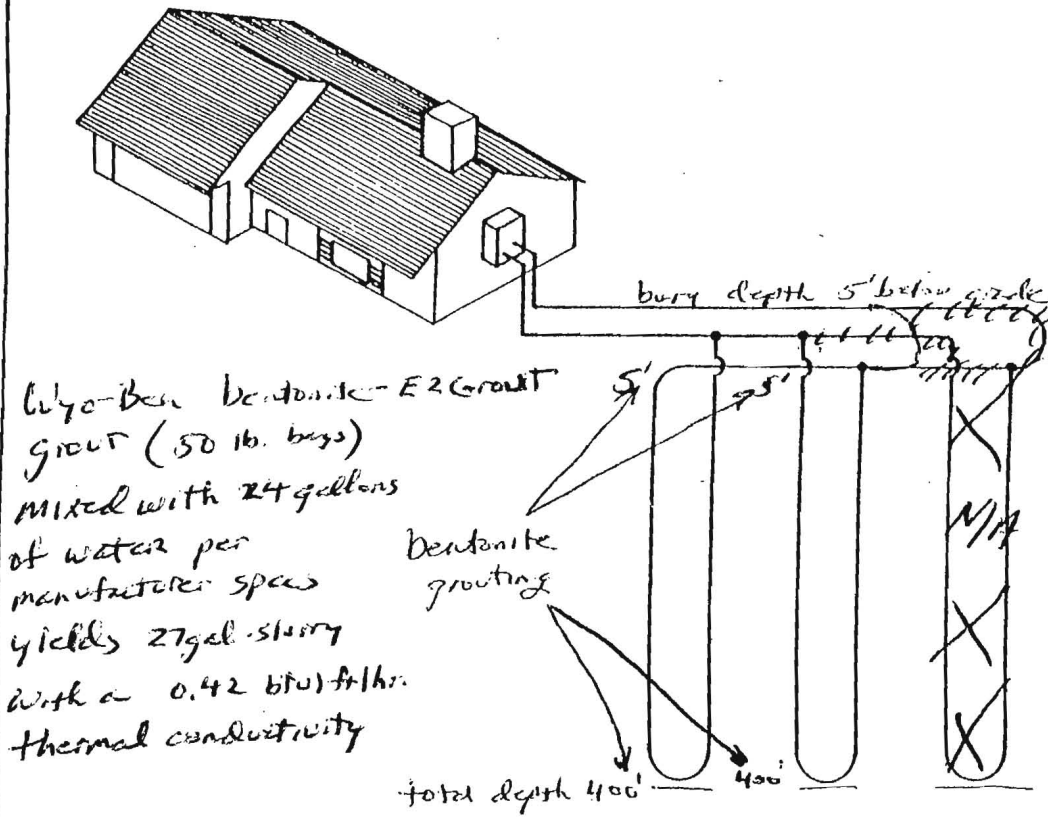 bury depth 5' below grade
5' 5'
Wyo-Ben bentonite - EZ Grout
grout (50 lb. bags)
mixed with 24 gallons
of water per
manufacturer specs
yields 27 gal. slurry
with a 0.42 btu/ft/hr.
thermal conductivity
bentonite
grouting
N/A
total depth 400' 400'